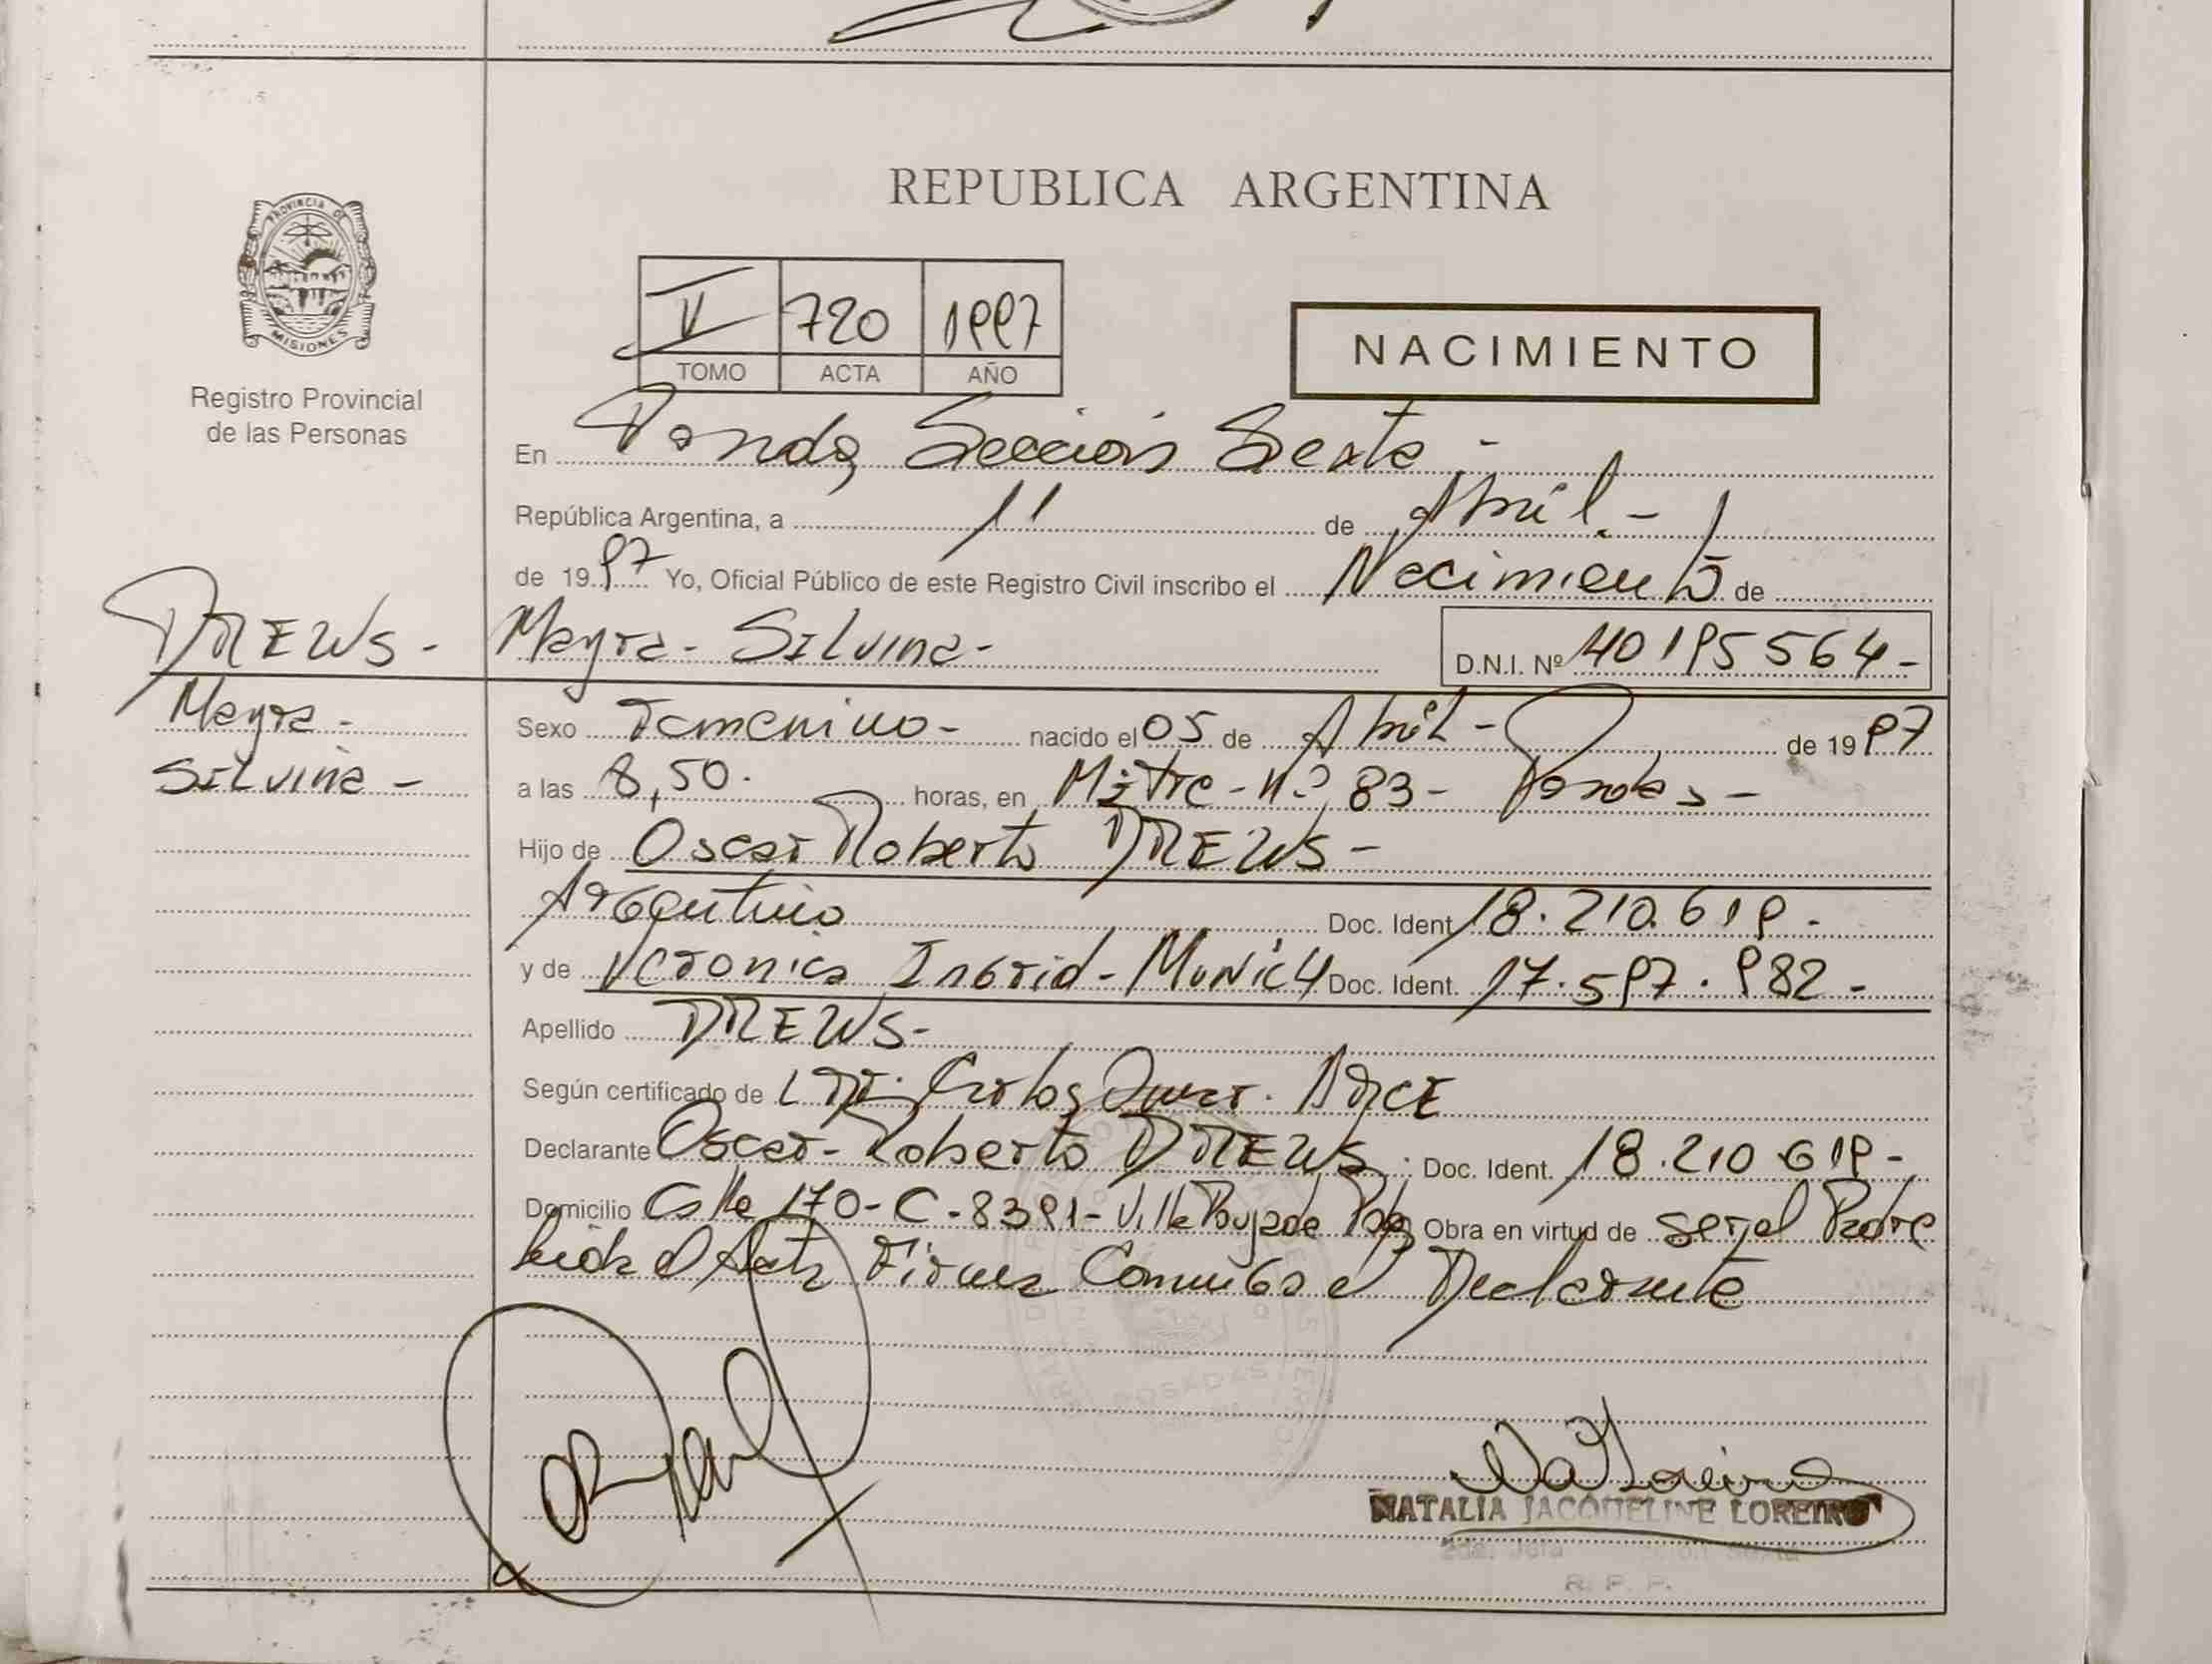 REPUBLICA ARGENTINA
PROVINCIA DE
MISIONES
Registro Provincial
de las Personas
V 720 1997
TOMO ACTA AÑO
NACIMIENTO
En Posadas, Sección Sexta -
República Argentina, a 11 de Abril. -
de 1997 Yo, Oficial Público de este Registro Civil inscribo el Nacimiento de
DREWS - Mayra - Silvina -
D.N.I. Nº 40195564 -
Mayra -
Silvina -
Sexo Femenino - nacido el 05 de Abril - de 1997
a las 8,50. horas, en Mitre - nº 83 - Posadas -
Hijo de Oscar Roberto DREWS -
Argentino Doc. Ident 18.210.619. -
y de Veronica Ingrid - Doc. Ident. 17.597.982 -
Apellido DREWS -
Según certificado de Carlos ARCE
Declarante Oscar - Roberto DREWS. Doc. Ident. 18.210 619 -
Domicilio Calle 170 - C - 8391 - Villa Poujade Obra en virtud de ser el Padre
Leida el Acta Firma Conmigo el Declarante
POSADAS
NATALIA JACQUELINE LOREIRO
R. P. P.